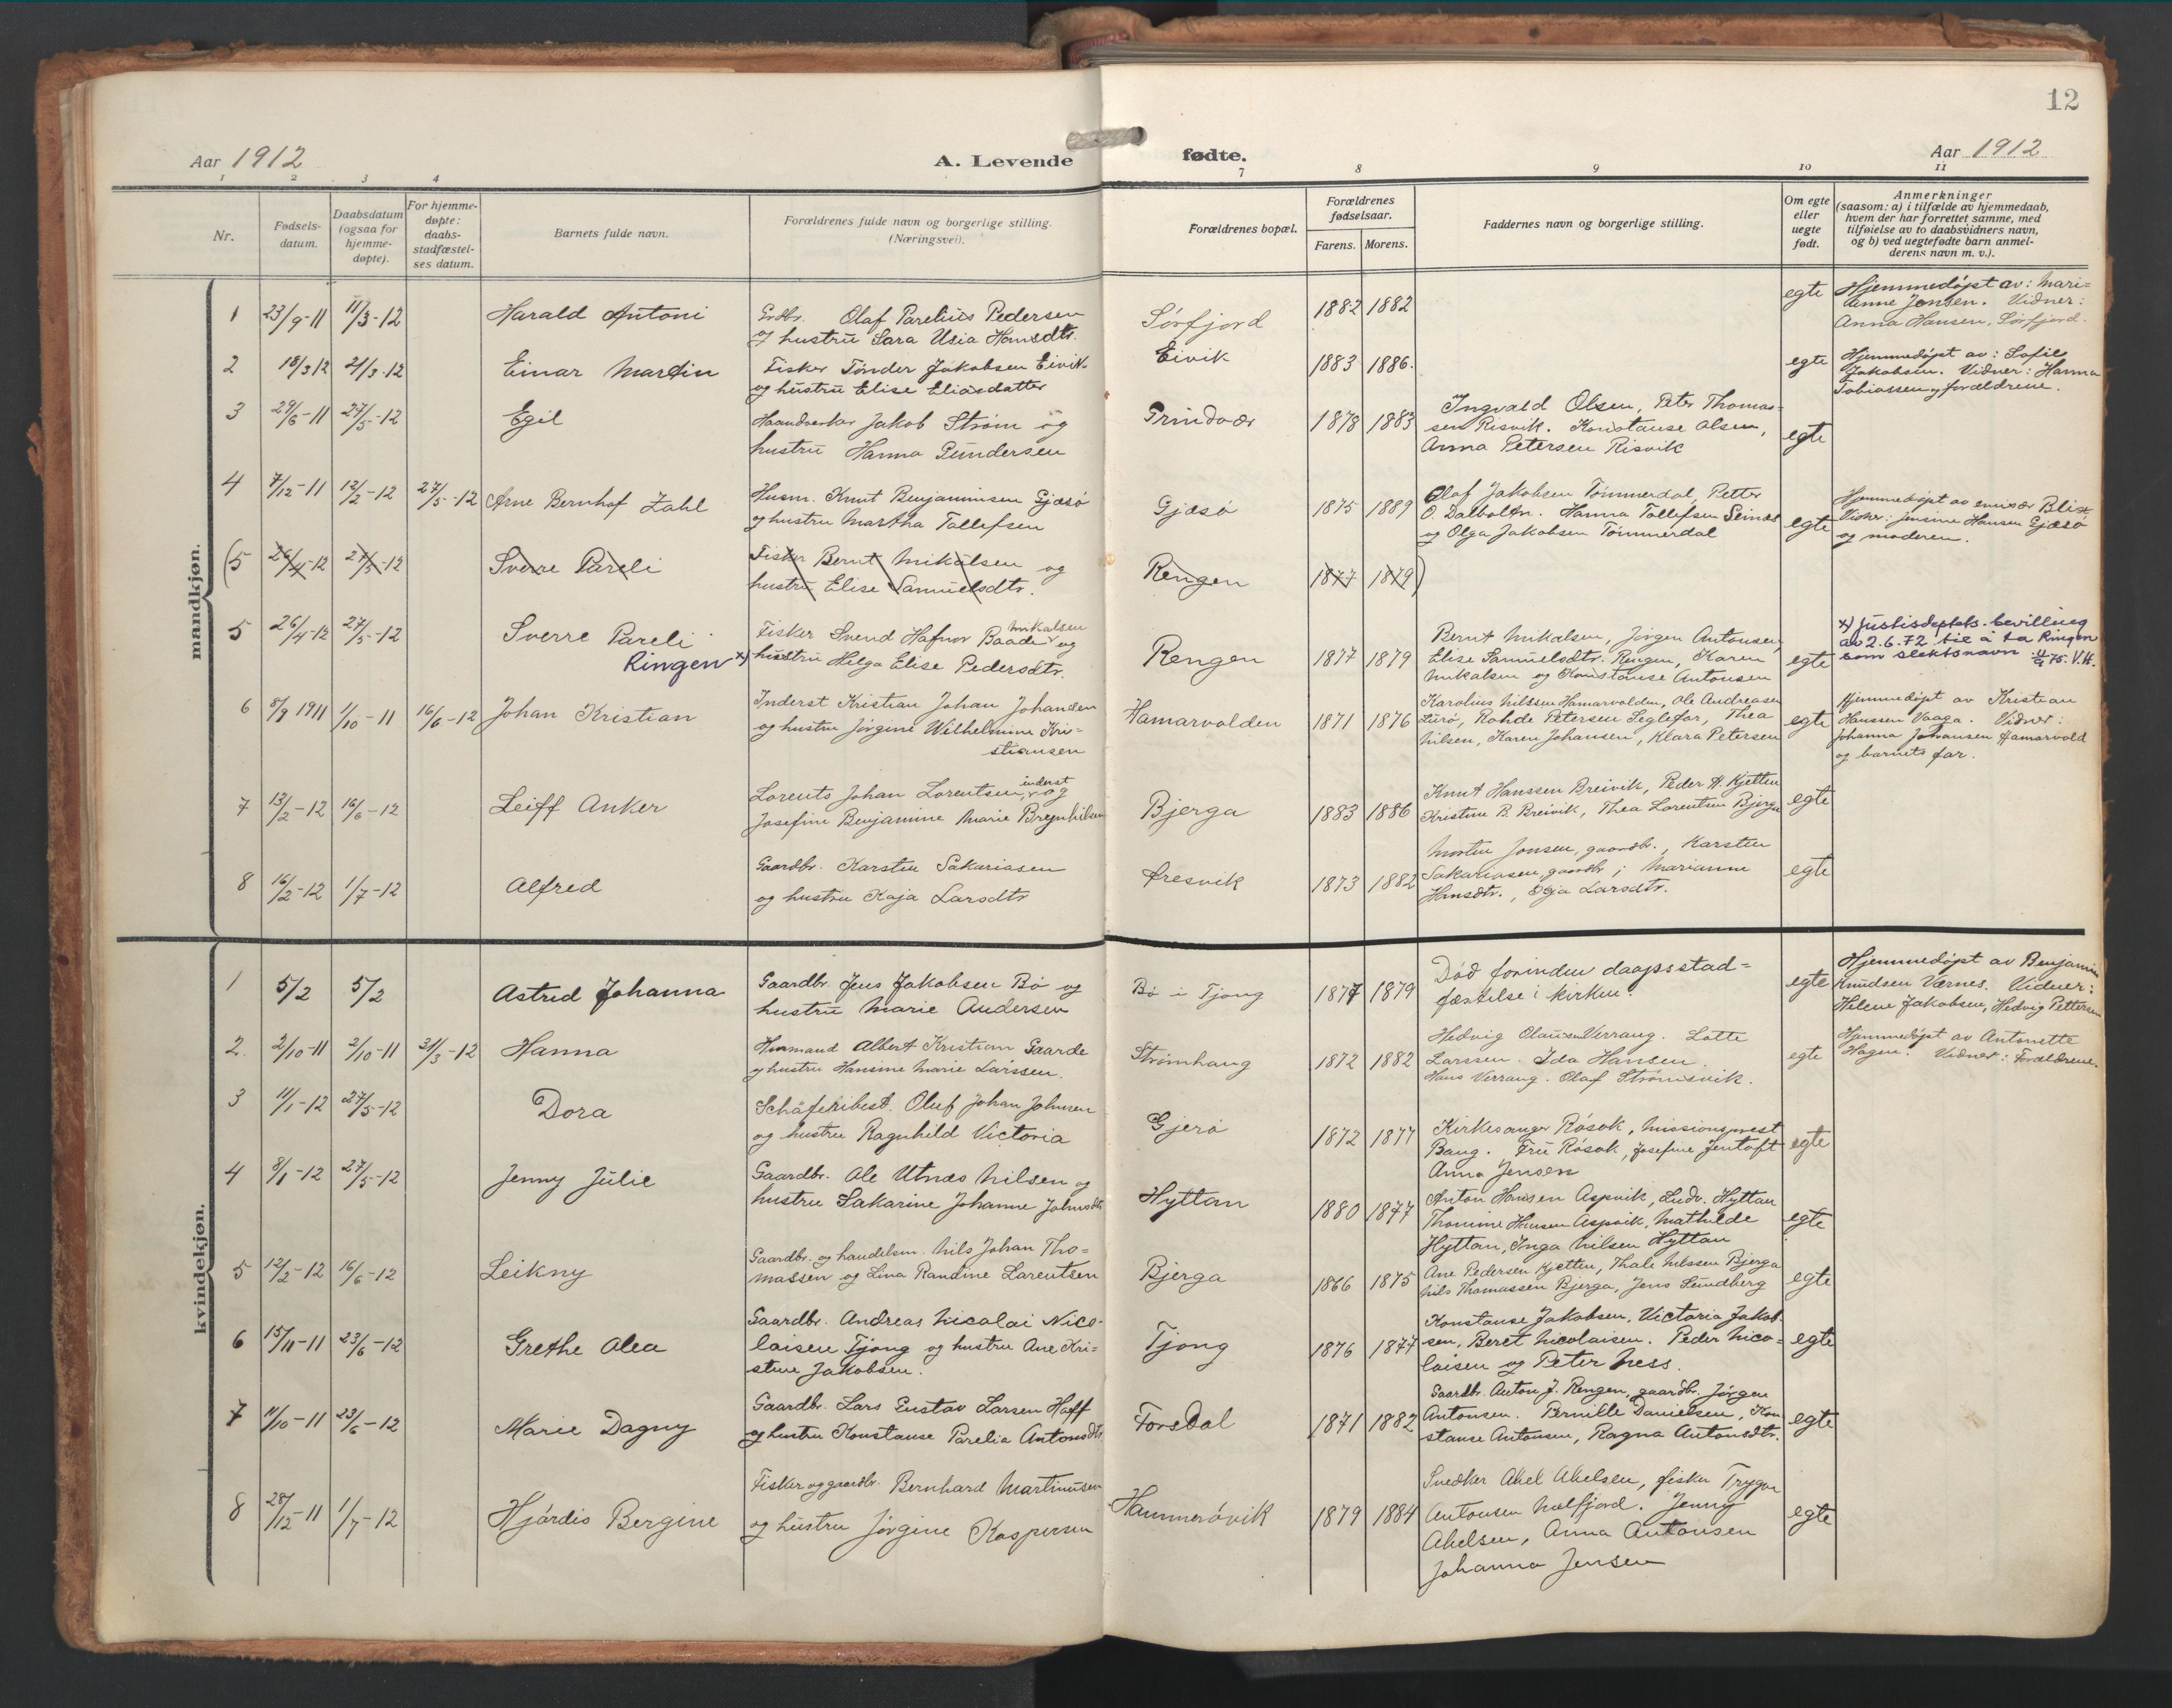 12
Aar 1912 A. Levende fødte. Aar 1912
1 2 3 4 7 8 9 10 11
Nr.
Fødsels-
datum.
Daabsdatum
(ogsaa for
hjemme-
døpte).
For hjemme-
døpte:
daabs-
stadfæstel-
ses datum.
Barnets fulde navn.
Forældrenes fulde navn og borgerlige stilling.
(Næringsvei).
Forældrenes bopæl.
Forældrenes
fødselsaar.
Farens. Morens.
Faddernes navn og borgerlige stilling.
Om egte
eller
uegte
født.
Anmerkninger
(saasom: a) i tilfælde av hjemmedaab,
hvem der har forrettet samme, med
tilføielse av to daabsvidners navn,
og b) ved uegtefødte barn anmel-
derens navn m. v.).
mandkjøn.
1 23/9-11 11/3-12 Harald Antoni
Grdbr. Olaf Parelius Pedersen
og hustru Sara Usia Hansdtr.
Sørfjord 1882 1882 egte
Hjemmedøpt av: Mari-
Anne Jensen. Vidner:
Anna Hansen, Sørfjord.
2 18/3 12 21/3-12 Einar Martin
Fisker Tønder Jakobsen Eivik
og hustru Elise Eliasdatter
Eivik 1883 1886. egte
Hjemmedøpt av: Sofie
Jakobsen. Vidner: Hanna
Tobiassen og forældrene.
3 29/6-11 27/5-12 Egil
Haandverker Jakob Strøm og
hustru Hanna Gundersen
Grindvær 1878 1883
Ingvald Olsen, Peter Thomas-
sen Risvik. Konstanse Olsen,
Anna Petersen Risvik
egte
4 7/12-11 12/2-12 27/5-12 Arne Bernhof Zahl
Husm. Knut Benjaminsen Gjæsø
og hustru Martha Tollefsen
Gjæsø 1875 1889
Olaf Jakobsen Tømmerdal, Petter
O. Dalboltn. Hanna Tollefsen Seinæs
og Olga Jakobsen Tømmerdal
egte
Hjemmedøpt av emissær Blix
Vidner: Jensine Hansen Gjæsø
og moderen.
(5 26/4-12 27/5-12 Sverre Pareli
Fisker Bernt Mikalsen og
hustru Elise Samuelsdtr.
Rengen 1877 1879)
5 26/4-12 27/5-12 Sverre Pareli
Ringen x)
Mikalsen
Fisker Svend Hafnor Baade og
hustru Helga Elise Pedersdtr.
Rengen 1877 1879
Bernt Mikalsen, Jørgen Antonsen,
Elise Samuelsdtr. Rengen, Karen
Mikalsen og Konstanse Antonsen
egte
x) Justisdeptets. bevilling
av 2.6.72 til å ta Ringen
som slektsnavn. 75. V.H.
6 8/9 1911 1/10-11 16/6-12 Johan Kristian
Inderst Kristian Johan Johansen
og hustru Jørgine Wilhelmine Kri-
stiansen
Hamarvolden 1871 1876
Karolius Nilssen Hamarvolden, Ole Andreasen
Lurø, Rohde Petersen Seglefor, Thea
Nilsen, Karen Johansen, Klara Petersen
egte
Hjemmedøpt av Kristian
Hanssen Vaaga. Vidner:
Johanna Johansen Hamarvold
og barnets far.
7 13/2-12 16/6-12 Leiff Anker
inderst
Lorents Johan Lorentsen, og
Josefine Benjamine Marie Brynhilsen
Bjerga 1883 1886
Knut Hanssen Breivik, Peder H. Kjetten
Kristine B. Breivik, Thea Lorentsen Bjerga
egte
8 16/2-12 1/7-12 Alfred
Gaardbr. Karsten Sakariasen
og hustru Kaja Larsdtr
Øresvik 1873 1882
Morten Jonsen, gaardbr., Karsten
Sakariasen, gaardbr; Marianne
Hansdtr., Kaja Larsdtr.
egte
kvindekjøn.
1 5/2 5/2 Astrid Johanna
Gaardbr. Jens Jakobsen Bø og
hustru Marie Andersen
Bø i Tjong 1877 1879
Død forinden daapsstad-
fæstelse i kirken.
egte
Hjemmedøpt av Benjamin
Knudsen Værnes. Vidner:
Helene Jakobsen, Hedvig Pettersen
2. 2/10-11 2/10-11 31/3-12 Hanna
Husmand Albert Kristian Gaarde
og hustru Hansine Marie Larssen.
Strømhaug 1872 1882
Hedvig Olausen Verrang. Lotte
Larssen. Ida Hansen.
Hans Verrang. Olaf Strømsvik.
egte
Hjemmedøpt av Antonette
Hagen. Vidner: Forældrene.
3 11/1-12 27/5-12 Dora
Schäferibest. Oluf Johan Johnsen
og hustru Ragnhild Victoria
Gjerø 1872 1877
Kirkesanger Røsok, missionsprest
Bang. Fru Røsok, Josefine Jentoft
Anna Jensen
egte
4 8/1-12 27/5-12 Jenny Julie
Gaardbr. Ole Utnæs Nilsen og
hustru Sakarine Johanne Johnsdtr
Hyttan 1880 1877
Anton Hansen Aspvik, Ludv. Hyttan
Thomine Hansen Aspvik, Mathilde
Hyttan, Inga Nilsen Hyttan
egte
5 12/2-12 16/6-12 Leikny
Gaardbr. og handelsm. Nils Johan Tho-
massen og Lina Randine Lorentsen
Bjerga 1866 1875
Ane Pedersen Kjetten, Thale Nilssen Bjerga
Nils Thomassen Bjerga, Jens Sundberg
egte
6 15/11-11 23/6-12 Grethe Olea
Gaardbr. Andreas Nicolai Nico-
laisen Tjong og hustru Ane Kri-
stine Jakobsen.
Tjong 1876 1877
Konstanse Jakobsen, Victoria Jakob-
sen, Beret Nicolaisen. Peder Nico-
laisen og Peter Ness.
egte
7 11/10-11 23/6-12 Marie Dagny
Gaardbr. Lars Gustav Larsen Haff
og hustru Konstanse Parelia Antonsdtr.
Forsdal 1871 1882
Gaardbr. Anton J. Rengen, gaardbr. Jørgen
Antonsen. Pernille Danielsen, Kon
stanse Antonsen, Ragna Antonsdtr.
egte
8 28/12-11 1/7-12 Hjørdis Bergine
Fisker og gaardbr. Bernhard Martinusen
og hustru Jørgine Kaspersen
Hammerøvik 1879 1884
Snedker Akel Akelsen, fisker Trygve
Antonsen Melfjord. Jenny
Akelsen, Anna Antonsen
Johanna Jensen
egte